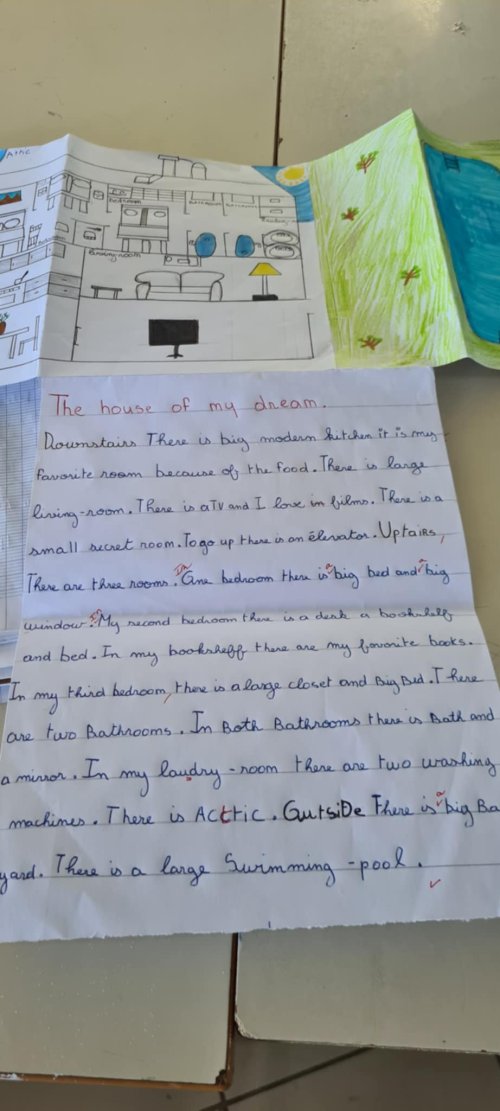 Attic
Bedroom
living-room
The house of my dream.
Downstairs There is big modern kitchen it is my
favorite room because of the food. There is large
living-room. There is a TV and I love im films. There is a
small secret room. To go up there is an élevator. Uptairs,
There are three rooms. In One bedroom there is a big bed and a big
window. My second bedroom there is a desk a bookshelf
and bed. In my bookshelff there are my favorite books.
In my third bedroom, there is a large closet and Big Bed. There
are two Bathrooms. In Both Bathrooms there is Bath and
a mirror. In my laudry-room there are two washing
machines. There is Acttic. OutsiDe There is a big Ba
yard. There is a large Swimming-pool.